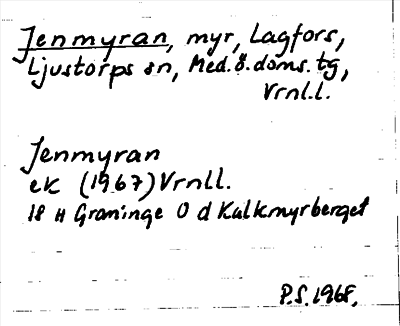 Jenmyran, myr, Lagfors,
Ljustorps sn, Med.ö.doms.tg,
Vrnl.l.
Jenmyran
ek (1967) Vrnll.
18 H Graninge O d Kalkmyrberget
P.S. 1968.